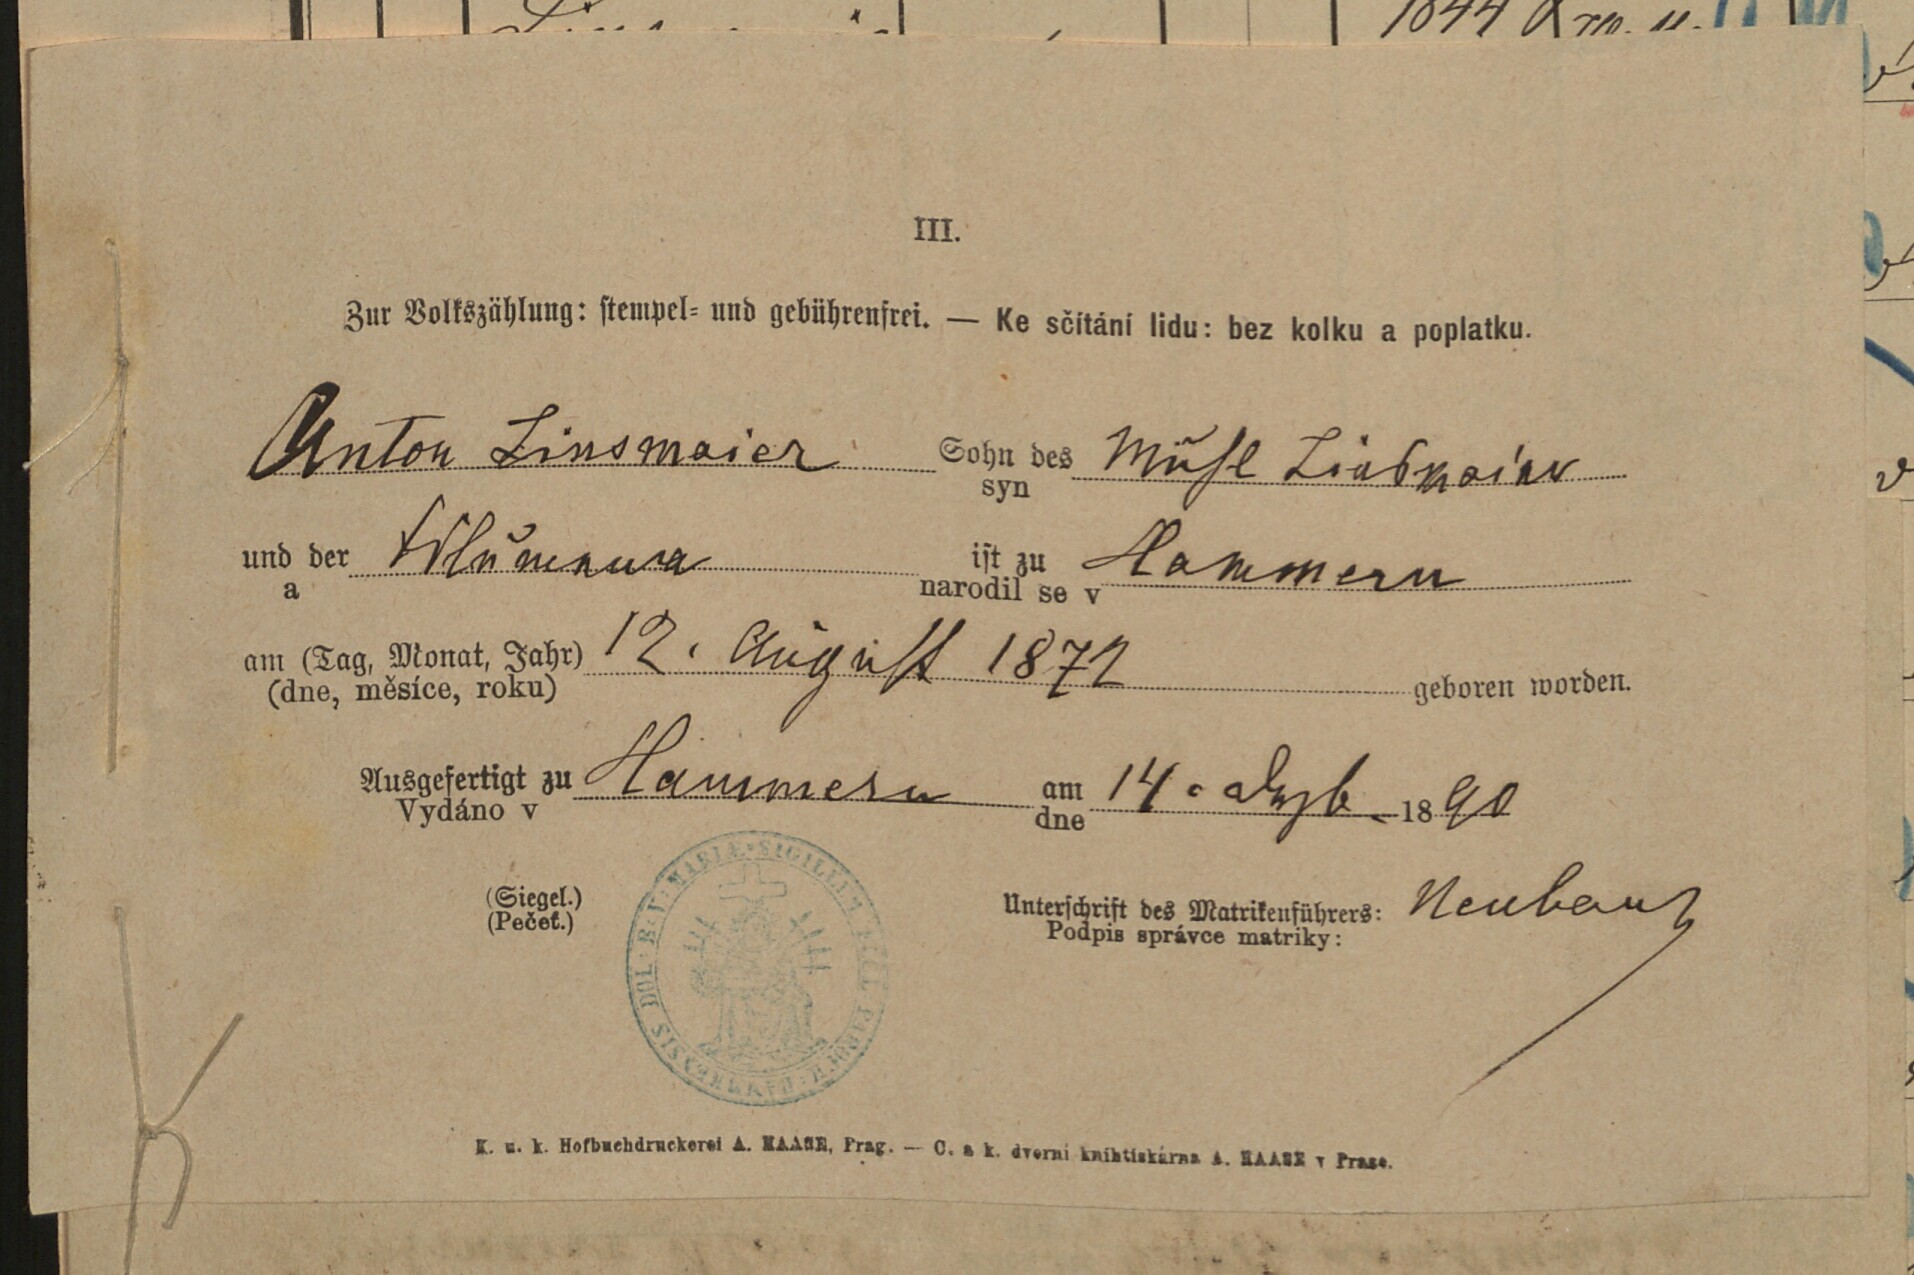 1844
III.
Zur Volkszählung: stempel- und gebührenfrei. — Ke sčítání lidu: bez kolku a poplatku.
Anton Linsmaier Sohn des Linsmaier
syn
und der ist zu Hammern
a narodil se v
am (Tag, Monat, Jahr) 12. August 1872 geboren worden.
(dne, měsíce, roku)
Ausgefertigt zu Hammern am 14. 1890
Vydáno v dne
(Siegel.) Unterschrift des Matrikenführers:
(Pečeť.) Podpis správce matriky:
K. u. k. Hofbuchdruckerei A. HAASE, Prag. — C. a k. dvorní knihtiskárna A. HAASE v Praze.